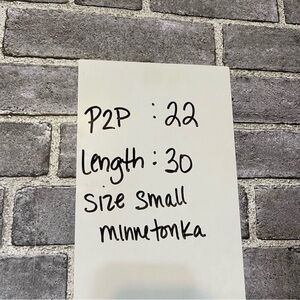 P2P : 22
Length : 30
Size Small
minnetonka